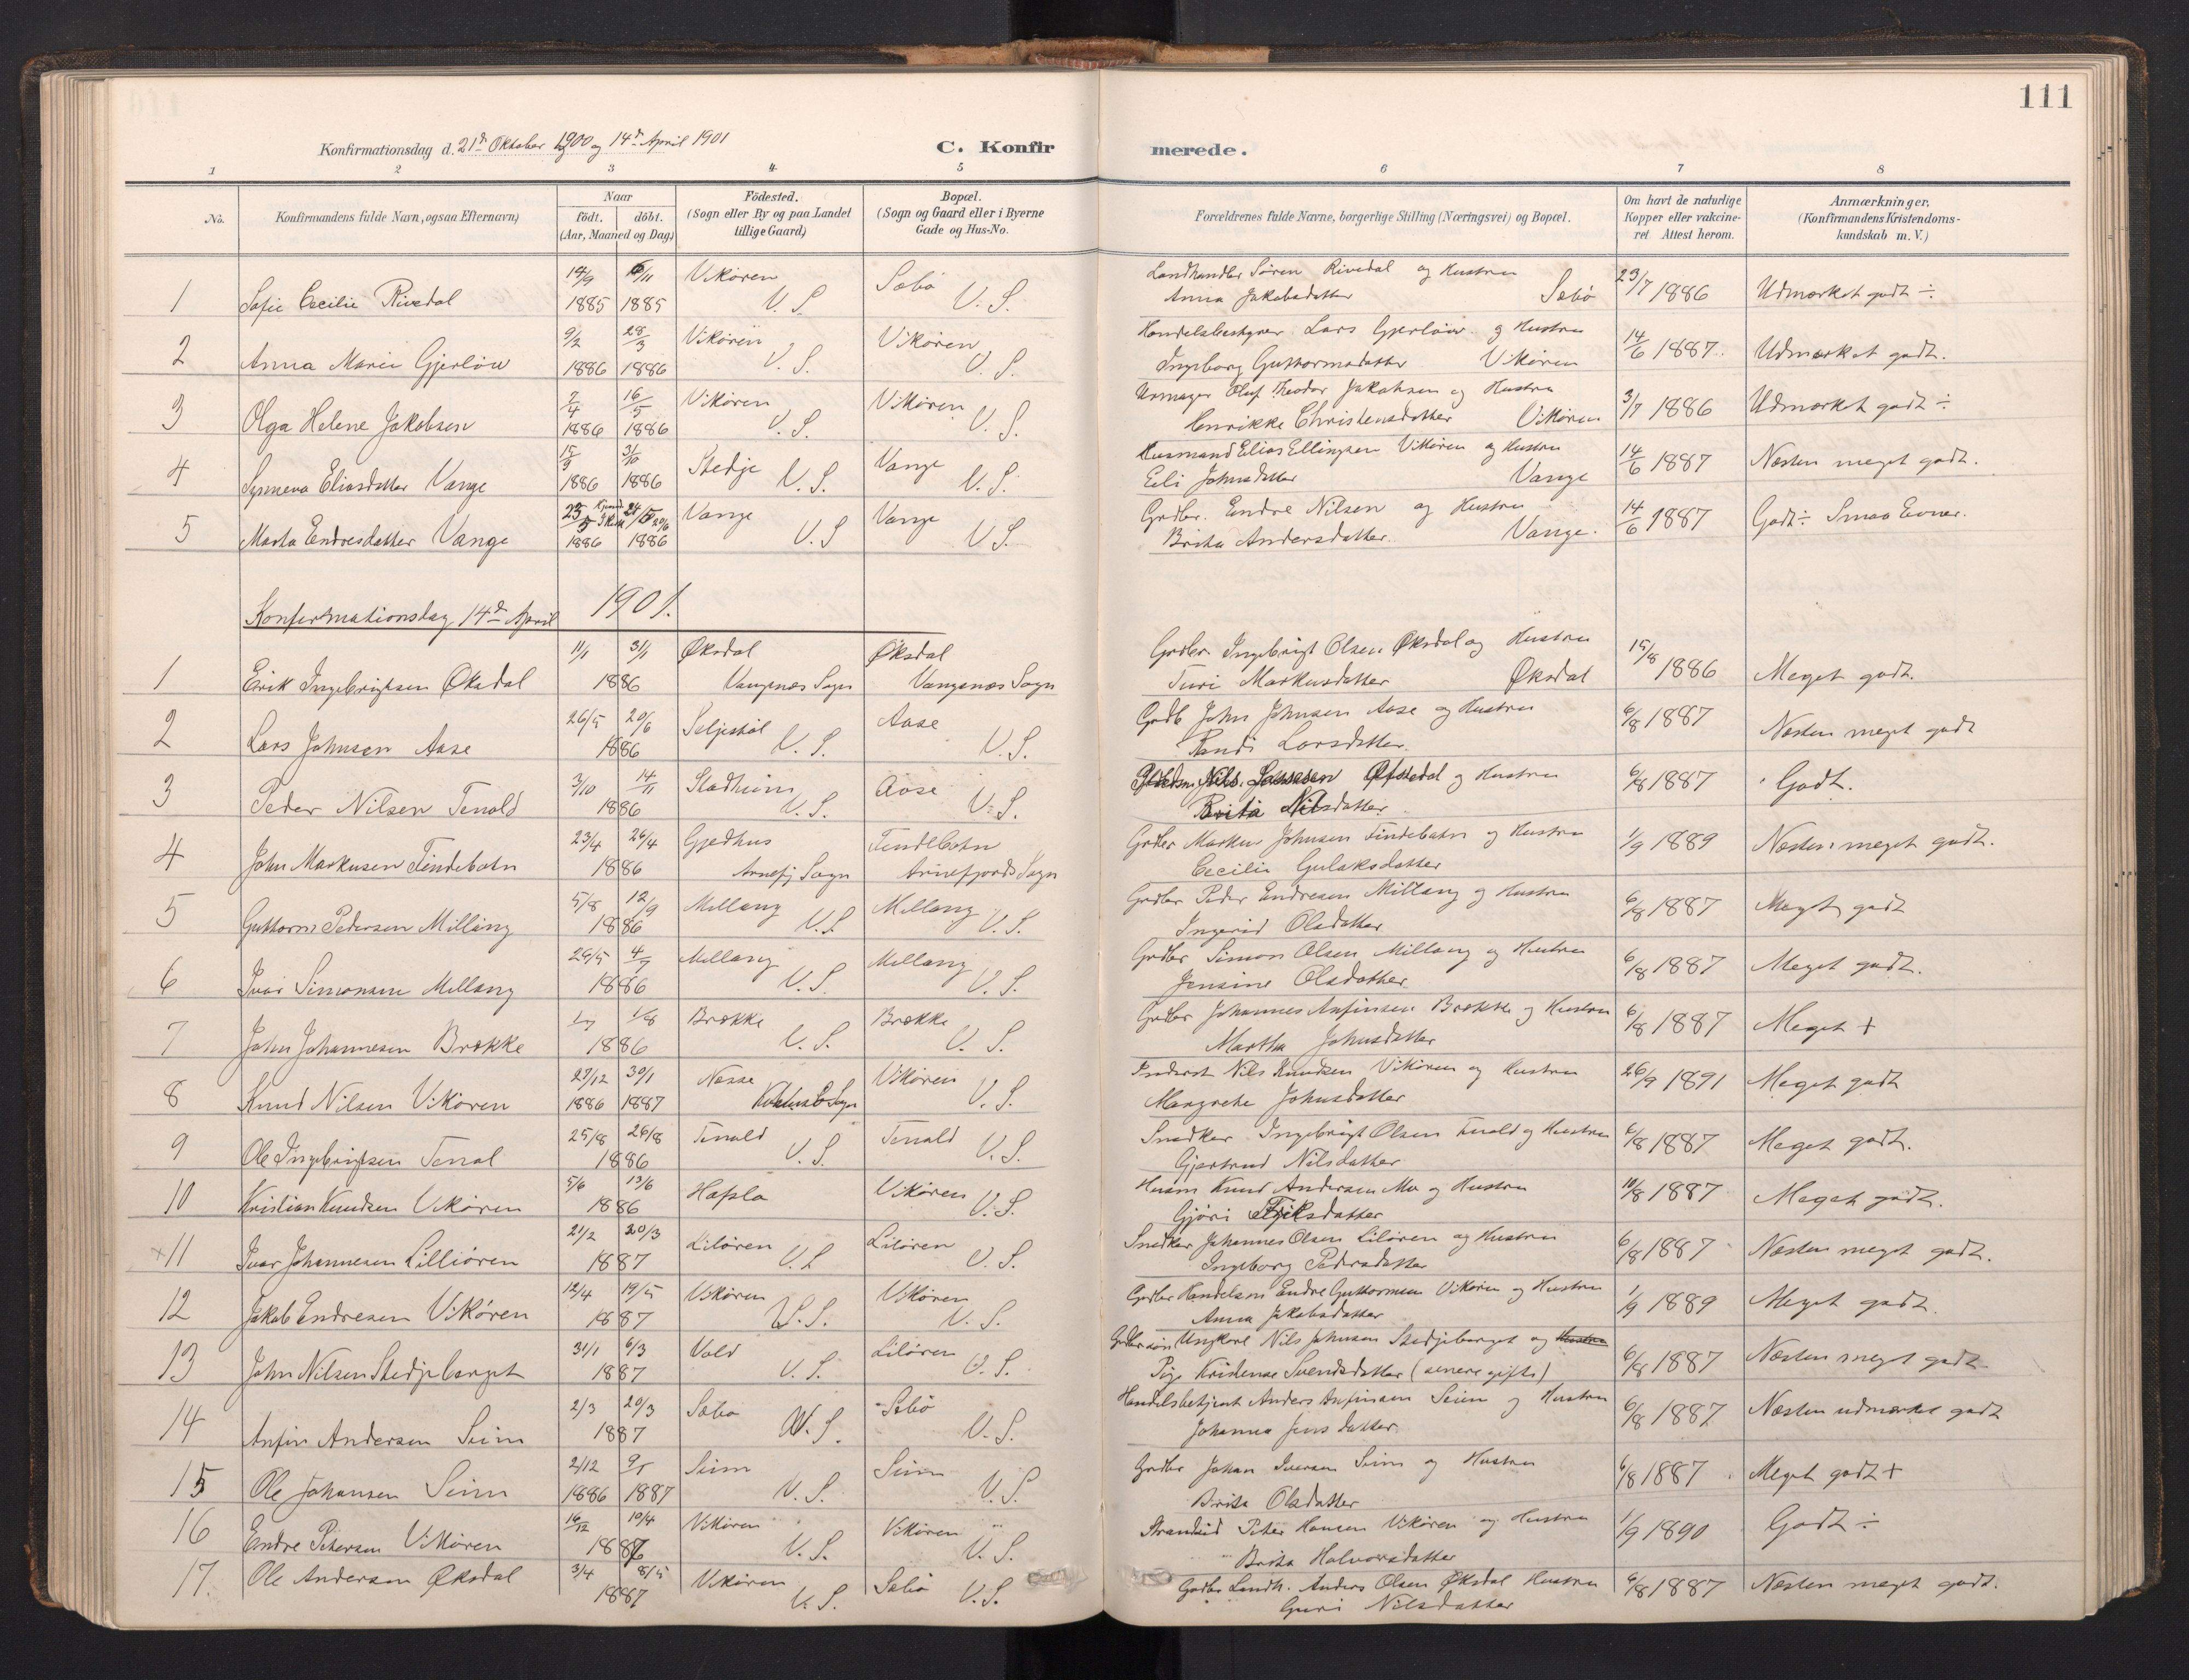 111
Konfirmationsdag d. 21de Oktober 1900 og 14de April 1901
C. Konfirmerede.
1 2 3 4 5 6 7 8
No.
Konfirmandens fulde Navn, ogsaa Efternavn)
Naar
födt. döbt.
(Aar, Maaned og Dag.)
Födested.
(Sogn eller By og paa Landet
tillige Gaard)
Bopæl.
(Sogn og Gaard eller i Byerne
Gade og Hus-No.
Forældrenes fulde Navne, borgerlige Stilling (Næringsvei) og Bopæl.
Om havt de naturlige
Kopper eller vakcine-
ret Attest herom.
Anmærkninger.
(Konfirmandens Kristendoms-
kundskab m. V.)
14/9 /11 Vikøren Sæbø Landhandler Søren Rivedal og Hustru 23/7 1886 Udmærket godt ÷
1 Sofie Cecilie Rivedal 1885 1885 V. S. V. S. Anna Jakobsdatter Sæbø
9/2 28/3 Vikøren Vikøren Handelsbestyrer Lars Gjerløw og Hustru 14/6 1887 Udmærket godt.
2 Anna Marie Gjerløw 1886 1886 V. S. V. S. Ingeborg Guttormsdatter Vikøren
7/4 16/5 Vikøren Vikøren Urmager Oluf Theodor Jakobsen og Hustru 3/7 1886 Udmærket godt ÷
3 Olga Helene Jakobsen 1886 1886 V. S. V. S. Henrikke Christensdatter Vikøren
15/9 3/10 Stedje Vange Husmand Elias Ellingsen Vikøren og Hustru 14/6 1887 Næsten meget godt.
4 Synneva Eliasdatter Vange 1886 1886 V. S. V. S. Eli Johnsdatter Vange
23/5 Vange Vange Grdbr. Endre Nilsen og Hustru 14/6 1887 Godt ÷ Smaa Evner.
5 Marta Endresdatter Vange 1886 1886 V. S. V. S. Brita Andersdatter. Vange.
Konfirmationsdag 14de April 1901.
11/1 31/1 Øksdal Øksdal Grdbr. Ingebrigt Olsen Øksdal og Hustru 15/8 1886 Meget godt.
1 Erik Ingebrigtsen Øksdal 1886 Vangsnes Sogn Vangsnes Sogn Turi Markusdatter Øksdal
26/5 20/6 Seljestøl Aase Grdb. John Johnsen Aase og Hustru 6/8 1887 Næsten meget godt
2 Lars Johnsen Aase 1886 V. S. V. S. Randi Larsdatter.
3/10 14/11 Stadheim Aase Nils Øfstedal og Hustru 6/8 1887 Godt.
3 Peder Nilsen Tenold 1886 V. S. V. S. Brita Nilsdatter.
23/4 26/4 Gjedhus Findebotn Grdbr Markus Johnsen Findebotn og Hustru 1/9 1889 Næsten meget godt.
4 John Markusen Findebotn 1886 Arnefj Sogn Arnefjords Sogn Cecilie Gulaksdatter
5/8 12/9 Mellang Mellang Grdbr Peder Endresen Millang og Hustru 6/8 1887 Meget godt
5 Guttorm Pedersen Millang 1886 V. S. V. S. Ingerid Olsdatter
29/5 4/7 Mellang Mellang Grdbr Simon Olsen Millang og Hustru 6/8 1887 Meget godt.
6 Ivar Simonsen Mellang 1886 V. S. V. S. Jensine Olsdatter
1/7 1/8 Brække Brække Grdbr Johannes Anfinsen Brække og Hustru 6/8 1887 Meget +
7 John Johannesen Brække 1886 V. S. V. S. Martha Johnsdatter
29/12 30/1 Nesse Vikøren Nils Knudsen Vikøren og Hustru 26/9 1891 Meget godt
8 Knud Nilsen Vikøren 1886 1887 Sogn V. S. Margrethe Johnsdatter
25/8 26/8 Tenold Tenold Snedker Ingebrigt Olsen Tenold og Hustru 6/8 1887 Meget godt.
9 Ole Ingebrigtsen Tenol 1886 V. S. V. S. Gjertrud Nilsdatter
5/6 13/6 Hafslo Vikøren Husm Knud Andersen Mo og Hustru 10/8 1887 Meget godt.
10 Kristian Knudsen Vikøren 1886 V. S. Gjøri datter
21/2 20/3 Liløren Liløren Snedker Johannes Olsen Liløren og Hustru 6/8 1887 Næsten meget godt.
+11 Ivar Johannesen Lilliøren 1887 V. S. V. S. Ingeborg Pedersdatter
12/4 19/5 Vikøren Vikøren Grdbr Handelsm Endre Guttormsen Vikøren og Hustru 1/9 1889 Meget godt.
12 Jakob Endresen Vikøren 1887 V. S. V. S. Anna Jakobsdatter
31/1 6/3 Vold Liløren Grdbrsøn Ungkarl Nils Johnsen Stedjeberget og Hustru 6/8 1887 Næsten meget godt
13 John Nilsen Stedjeberget 1887 V. S. V. S. Pige Kristense Svendsdatter (senere gifte)
2/3 20/3 Sæbø Sæbø Handelsbetjent Anders Anfinsen Seim og Hustru 6/8 1887 Næsten udmærket godt
14 Anfin Andersen Seim 1887 V. S. V. S. Johanna Jensdatter.
2/12 9/1 Seim Seim Grdbr Johan Iversen Seim og Hustru 6/8 1887 Meget godt +
15 Ole Johansen Seim 1886 1887 V. S. V. S. Brita Olsdatter
16/12 10/4 Vikøren Vikøren Strandsid Peter Hansen Vikøren og Hustru 1/9 1890 Godt ÷
16 Endre Petersen Vikøren 1887 V. S. V. S. Brita Halvorsdatter
3/4 8/5 Vikøren Sæbø Grdbr Landh. Anders Olsen Øksdal Hustru 6/8 1887 Næsten meget godt.
17. Ole Andersen Øksdal 1887 V. S. V. S. Guri Nilsdatter